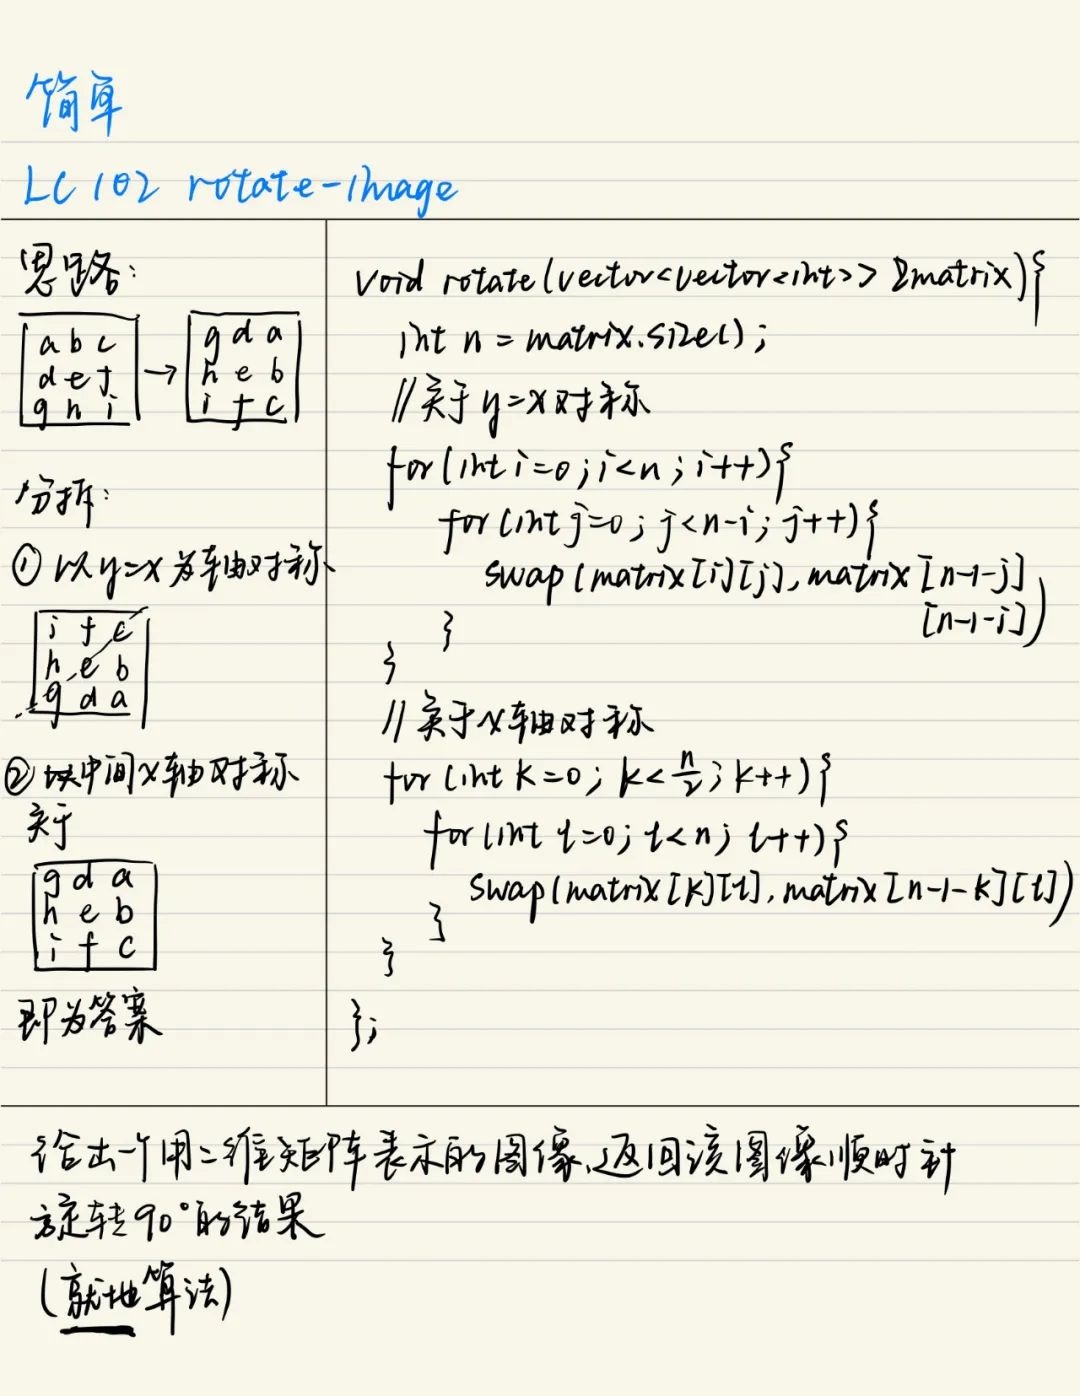 简单
LC 102 rotate-image
思路:
a b c
d e f
g h i
→
g d a
h e b
i f c
分析:
① 以y=x为轴对称
i f c
h e b
g d a
② 中间x轴对称
关于
g d a
h e b
i f c
即为答案
void rotate(vector<vector<int>> &matrix){
int n = matrix.size();
//关于y=x对称
for(int i=0;i<n;i++){
for(int j=0;j<n-i;j++){
swap(matrix[i][j],matrix[n-1-j]
[n-1-i])
}
}
//关于x轴对称
for(int k=0;k<n/2;k++){
for(int t=0;t<n;t++){
swap(matrix[k][t],matrix[n-1-k][t])
}
}
};
给出一个用二维矩阵表示的图像,返回该图像顺时针
旋转90°的结果
(就地算法)